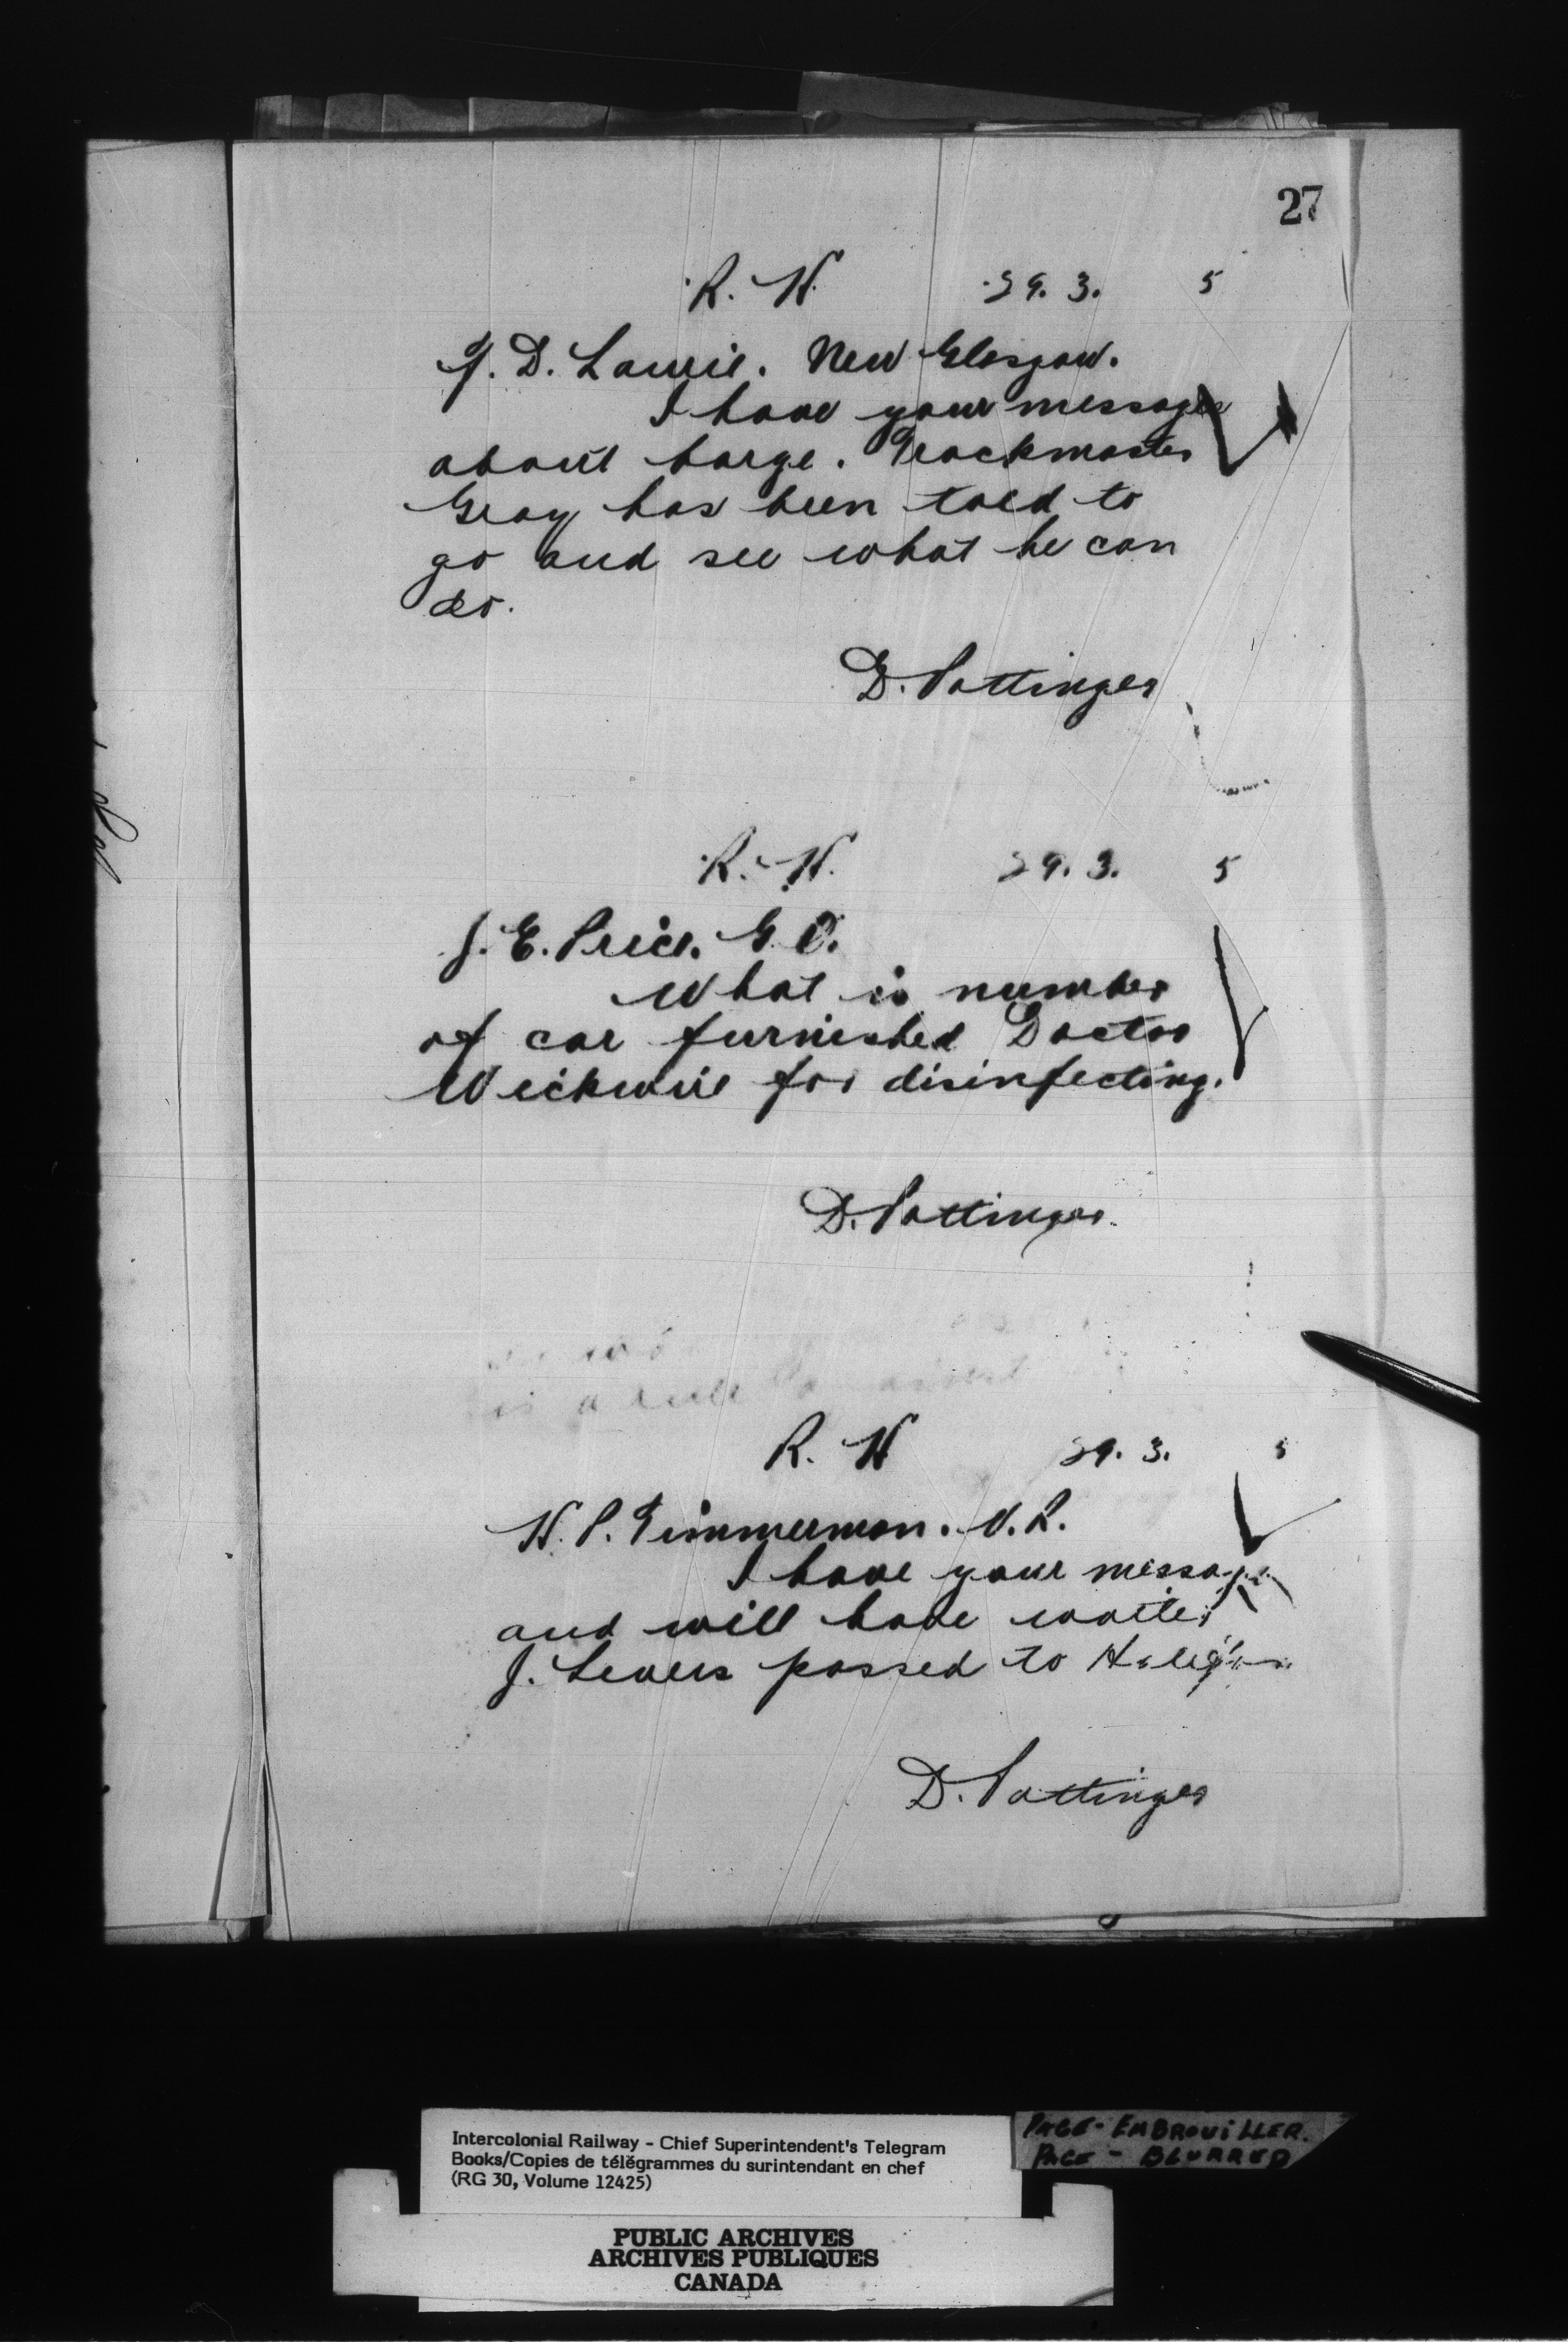 27
R. H. 29. 3. 5
J. D. Lawrie. New Glasgow.
I have your message
about barge. Trackmaster
Gray has been told to
go and see what he can
do.
D. Pottinger
R. H. 29. 3. 5
J. E. Price. G. O.
What is number
of car furnished Doctor
Wickwire for disinfecting.
D. Pottinger.
R. H 29. 3. 5
H. P. Timmerman. V. R.
I have your message
and will have waiter
J. Lewis passed to Halifax
D. Pottinger
Intercolonial Railway - Chief Superintendent's Telegram
Books/Copies de télégrammes du surintendant en chef
(RG 30, Volume 12425)
PAGE - EMBROUILLER.
PAGE - BLURRED
PUBLIC ARCHIVES
ARCHIVES PUBLIQUES
CANADA